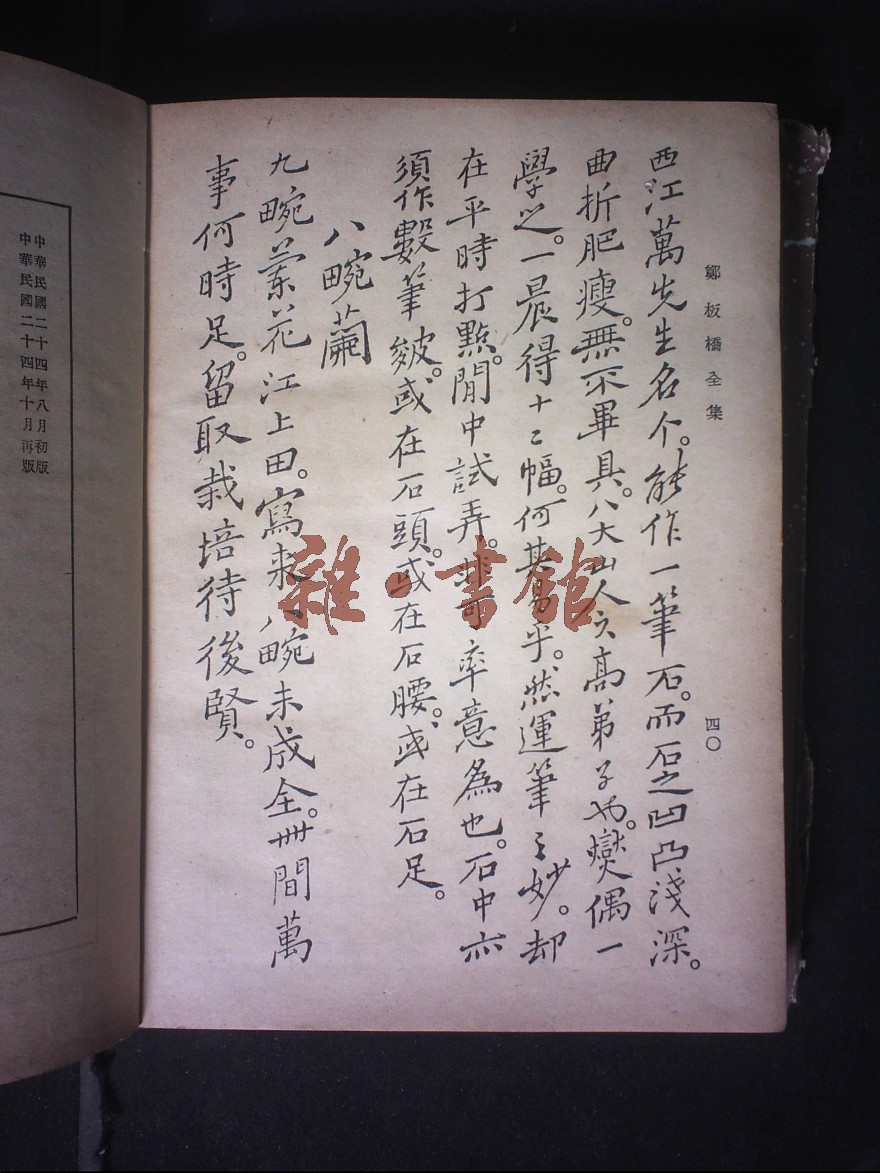 鄭板橋全集
四〇
西江萬先生名个。能作一筆石。而石之凹凸淺深。
曲折肥瘦。無不畢具。八大山人之高弟子也。燮偶一
學之。一晨得十二幅。何其易乎。然運筆之妙。却
在平時打點。閒中試弄。非可率意為也。石中亦
須作數筆皴。或在石頭。或在石腰。或在石足。
八畹蘭
九畹蘭花江上田。寫來八畹未成全。世間萬
事何時足。留取栽培待後賢。
中華民國二十四年八月初版
中華民國二十四年十月再版
雜·書館